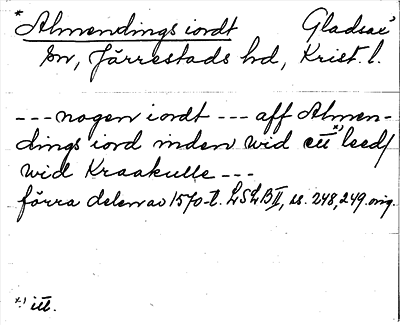 * Almendings iordt Gladsax
sn, Järrestads hd, Krist. l.
--- nogen iordt --- aff Almen-
dings iord inden wid ett*) leed/
wid Kraakulle ---
förra delen av 1570-t. LSLB II, s. 248, 249. orig.
*) itt.